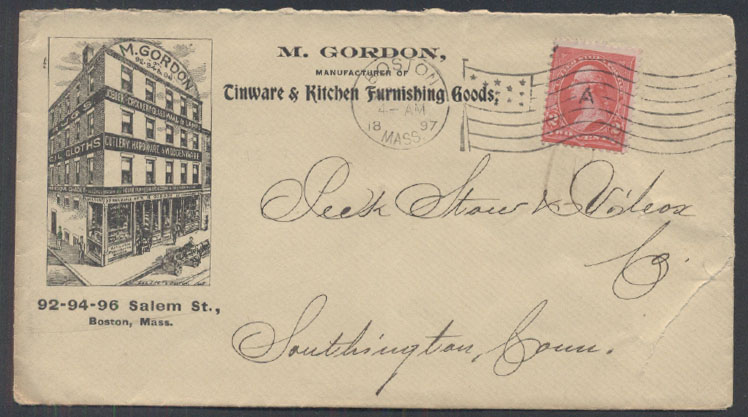 M. GORDON
92-94-96
M. GORDON,
MANUFACTURER OF
Tinware & Kitchen Furnishing Goods,
BOSTON
4-AM
18 97
MASS.
A
OIL CLOTHS
CUTLERY, HARDWARE & WOODENWARE
Peck Stow & Wilcox
Co
Southington, Conn.
92-94-96 Salem St.,
Boston, Mass.